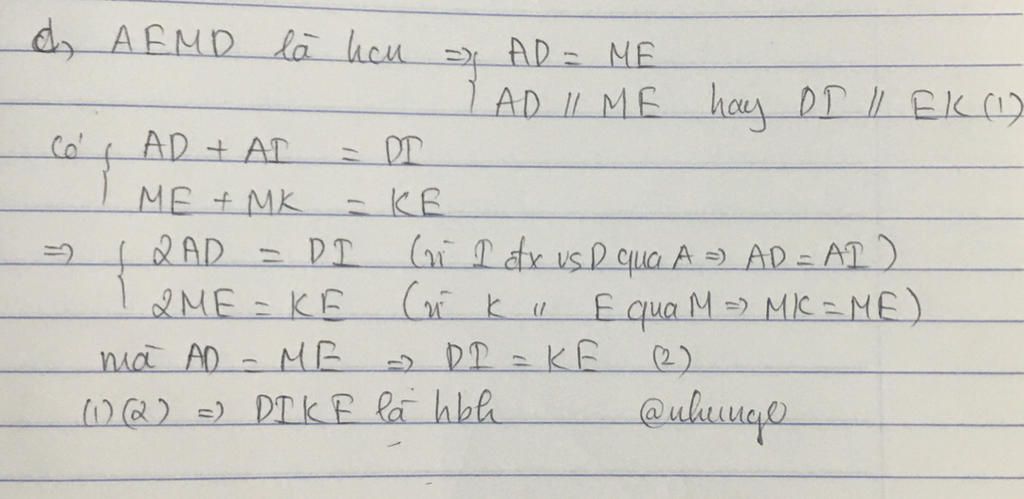 d, AEMD là hcn => { AD = ME
AD // ME hay DI // EK (1)
Có { AD + AI = DI
ME + MK = KE
=> { 2AD = DI (vì I đx vs D qua A => AD = AI)
2ME = KE (vì K " E qua M => MK = ME)
mà AD = ME => DI = KE (2)
(1)(2) => DIKE là hbh @nhung8